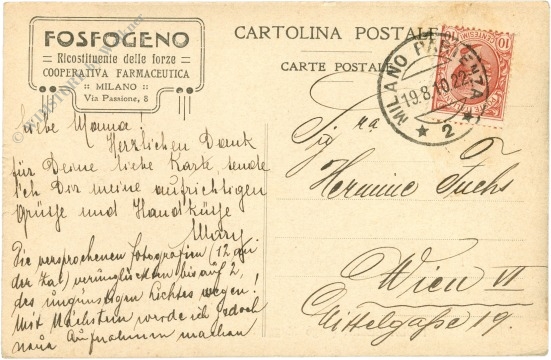 FOSFOGENO
Ricostituente delle forze
COOPERATIVA FARMACEUTICA
:: MILANO ::
Via Passione, 8
CARTOLINA POSTALE
CARTE POSTALE
MILANO PARTENZA
19.8.10.22-
2
10
CENTESIMI
Liebe Mama!
Herzlichen Dank
für Deine liebe Karte, sende
ich Dir meine aufrichtigen
Grüsse und Handküsse
Mary
Die versprochenen Fotografien (12 an
der Zal) verunglückten bis auf 2,
des ungünstigen Lichtes wegen!
Mit Nächstem werde ich jedoch
neue Aufnahmen machen
Sig ra
Hermine Fuchs
Wien VI
Mittelgaße 19.